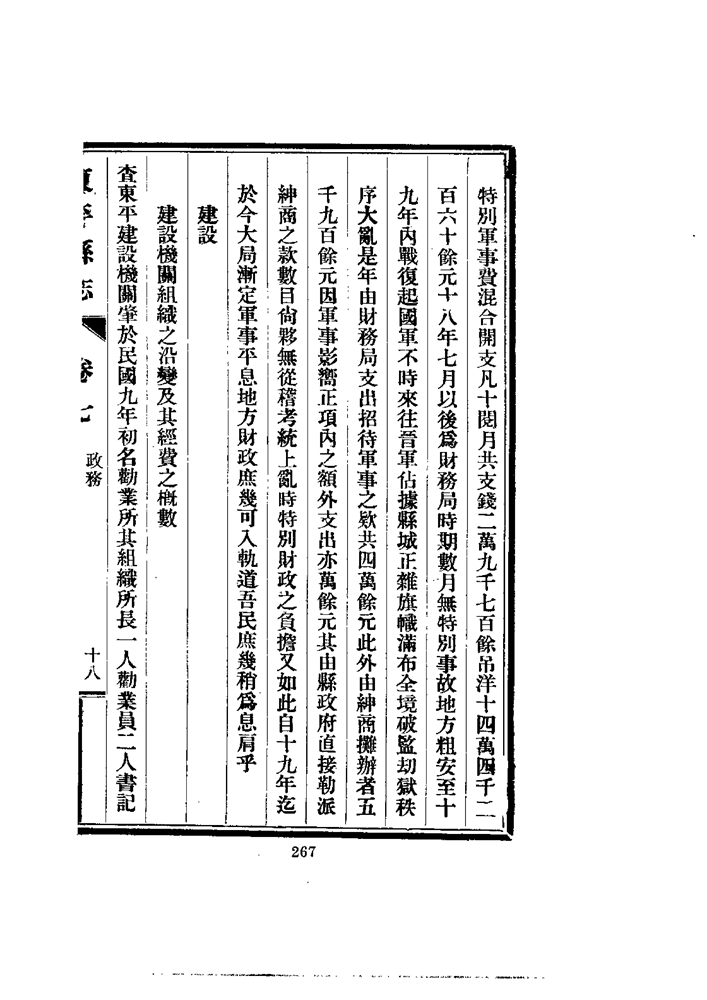 特別軍事費混合開支凡十閱月共支錢二萬九千七百餘吊洋十四萬四千二
百六十餘元十八年七月以後爲財務局時期數月無特別事故地方粗安至十
九年內戰復起國軍不時來往晉軍佔據縣城正雜旗幟滿布全境破監刧獄秩
序大亂是年由財務局支出招待軍事之欵共四萬餘元此外由紳商攤辦者五
千九百餘元因軍事影嚮正項內之額外支出亦萬餘元其由縣政府直接勒派
紳商之款數目尙夥無從稽考統上亂時特別財政之負擔又如此自十九年迄
於今大局漸定軍事平息地方財政庶幾可入軌道吾民庶幾稍爲息肩乎
建設
建設機關組織之沿變及其經費之槪數
查東平建設機關肇於民國九年初名勸業所其組織所長一人勸業員二人書記
東平縣志
卷七
政務
十八
267